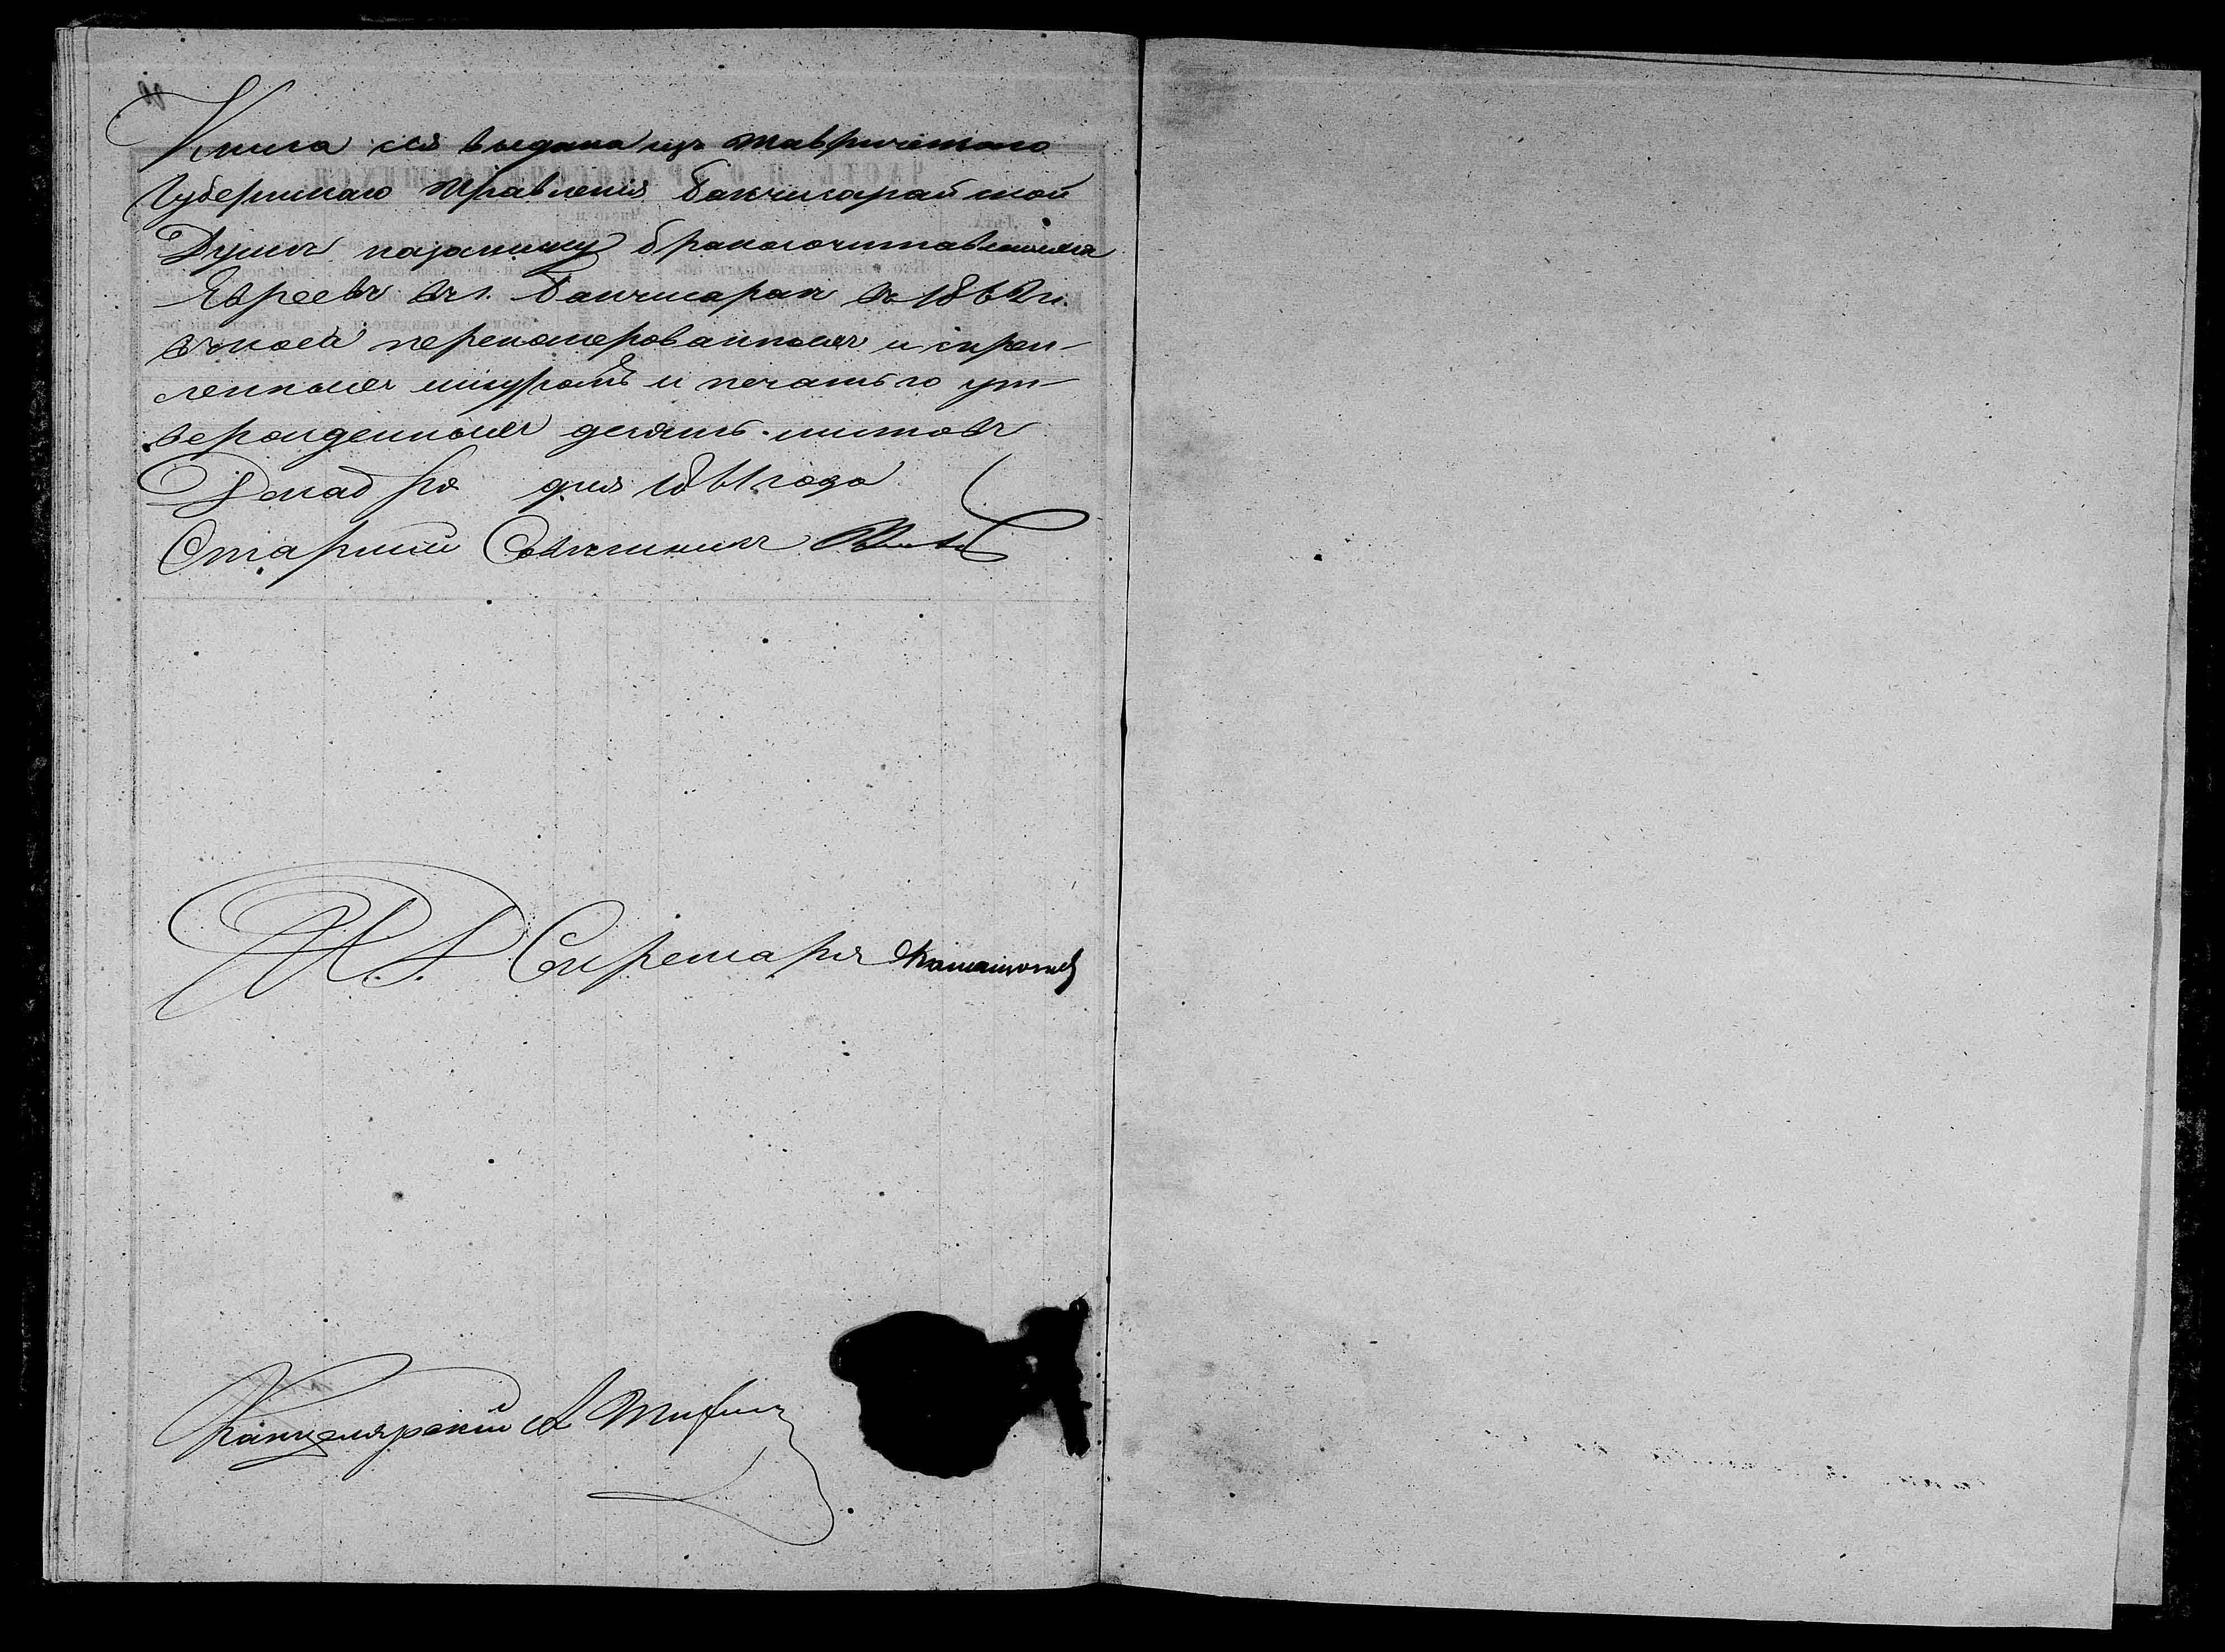 Книга сія выдана изъ Таврическаго
Губернскаго Правленія Бакчисарайской
Думѣ на записку бракосочитавшихся
Евреевъ въ г. Бакчисараѣ въ 1862 г.
въ коей перенумерованныхъ и скреп-
ленныхъ шнуромъ и печатью ут-
вержденныхъ десять листовъ
Декабря дня 1861 года
Старшій Совѣтникъ
Секретаря
Канцелярскій
ЧАСТЬ II. О БРАКОСОЧЕТАВШИХСЯ